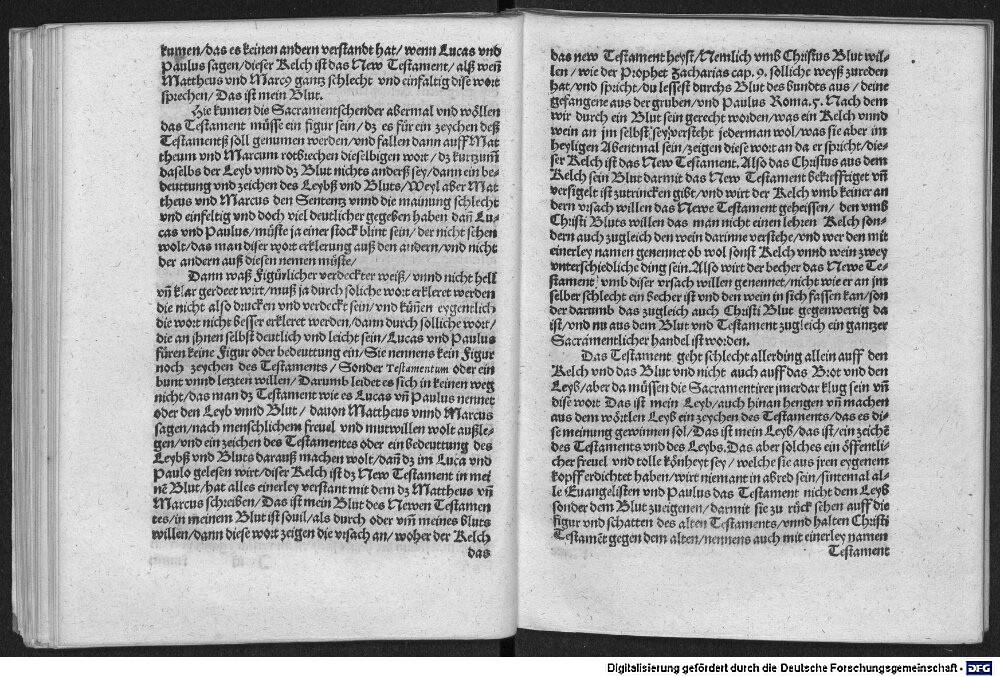 kumen/das es keinen andern verstandt hat/wenn Lucas vnd
Paulus sagen/dieser Kelch ist das New Testament/alß weñ
Mattheus vnd Marc9 gantz schlecht vnd einfaltig dise wort
sprechen/Das ist mein Blut.
Hie kumen die Sacramentschender abermal vnd wöllen
das Testament müsse ein figur sein/dz es für ein zeychen deß
Testamentß söll genumen werden/vnd fallen dann auff Mat
theum vnd Marcum rotbrechen dieselbigen wort/dz kurtzum̃
daselbs der Leyb vnnd dz Blut nichts anderß sey/dann ein be-
deuttung vnd zeichen des Leybß vnd Bluts/Weyl aber Mat
theus vnd Marcus den Sententz vnnd die mainung schlecht
vnd einfeltig vnd doch viel deutlicher gegeben haben dañ Lu-
cas vnd Paulus/müste ja einer stock blint sein/der nicht sehen
wolt/das man diser wort erklerung auß den andern/vnd nicht
der andern auß diesen nemen müste/
Dann waß Figürlicher verdeckter weiß/vnnd nicht hell
vñ klar geredet wirt/muß ja durch söliche wort erkleret werden
die nicht also drucken vnd verdeckt sein/vnd künnen eygentlich
die wort nicht besser erkleret werden/dann durch sölliche wort/
die an jhnen selbst deutlich vnd leicht sein/Lucas vnd Paulus
füren keine Figur oder bedeuttung ein/Sie nennens kein Figur
noch zeychen des Testaments/Sonder Testamentum oder ein
bunt vnnd letzten willen/Darumb leidet es sich in keinen weg
nicht/das man dz Testament wie es Lucas vñ Paulus nennet
oder den Leyb vnnd Blut/dauon Mattheus vnnd Marcus
sagen/nach menschlichem freuel vnd mutwillen wolt außle-
gen/vnd ein zeichen des Testamentes oder ein bedeuttung des
Leybß vnd Bluts darauß machen wolt/dañ dz im Luca vnd
Paulo gelesen wirt/diser Kelch ist dz New Testament in mei
nẽ Blut/hat alles einerley verstant mit dem dz Mattheus vñ
Marcus schreiben/Das ist mein Blut des Newen Testamen
tes/in meinem Blut ist souil/als durch oder vm̃ meines bluts
willen/dann diese wort zeigen die vrsach an/woher der Kelch
das
das new Testament heyst/Nemlich vmb Christus Blut wil-
len/wie der Prophet Zacharias cap. 9. sölliche weyß zureden
hat/vnd spricht/du lessest durchs Blut des bundts aus/deine
gefangene aus der gruben/vnd Paulus Roma.5. Nach dem
wir durch ein Blut sein gerecht worden/was ein Kelch vnnd
wein an jm selbst sey/versteht jederman wol/was sie aber im
heyligen Abentmal sein/zeigen diese wort an da er spricht/die-
ser Kelch ist das New Testament. Also das Christus aus dem
Kelch sein Blut darmit das New Testament bekrefftiget vñ
versigelt ist zutrincken gibt/vnd wirt der Kelch vmb keiner an
dern vrsach willen das Newe Testament geheissen/den vmb
Christi Bluts willen das man nicht einen lehren Kelch son-
dern auch zugleich den wein darinne verstehe/vnd wer den mit
einerley namen genennet ob wol sonst Kelch vnnd wein zwey
vnterschiedliche ding sein. Also wirt der becher das Newe Te-
stament vmb diser vrsach willen genennet/nicht wie er an jm
selber schlecht ein becher ist vnd den wein in sich fassen kan/son
der darumb das zugleich auch Christi Blut gegenwertig da
ist/vnd nu aus dem Blut vnd Testament zugleich ein gantzer
Sacramentlicher handel ist worden.
Das Testament geht schlecht allerding allein auff den
Kelch vnd das Blut vnd nicht auch auff das Brot vnd den
Leyb/aber da müssen die Sacramentirer jmerdar klug sein vñ
dise wort Das ist mein Leyb/auch hinan hengen vñ machen
aus dem wörtlen Leyb ein zeychen des Testaments/das es di-
se meinung gewinnen sol/Das ist mein Leyb/das ist/ein zeichẽ
des Testaments vnd des Leybs. Das aber solches ein öffentli-
cher freuel vnd tolle könheyt sey/welche sie aus jren eygenem
kopff erdichtet haben/wirt niemant in abred sein/sintemal al-
le Euangelisten vnd Paulus das Testament nicht dem Leyb
sonder dem Blut zueigenen/darmit sie zu rück sehen auff die
figur vnd schatten des alten Testaments/vnnd halten Christi
Testamẽt gegen dem alten/nennens auch mit einerley namen
Testament
Digitalisierung gefördert durch die Deutsche Forschungsgemeinschaft - DFG